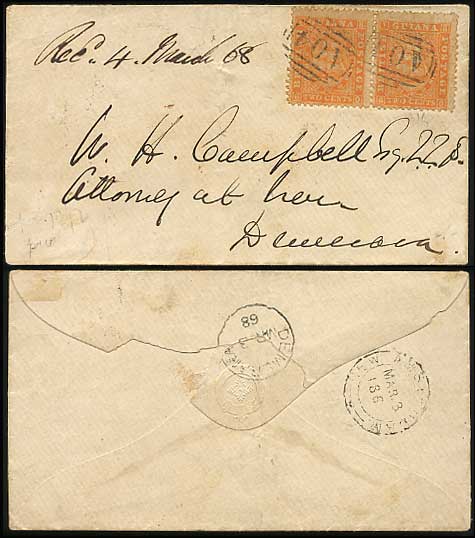 Recd. 4. March 68
GUIANA GUIANA
POSTAGE POSTAGE
TWO CENTS TWO CENTS
A04 A04
W. H. Campbell Esq. LLD.
Attorney at Law
Demerara.
DEMERARA
MR 3
68
NEW AMSTERDAM
MAR. 3
186